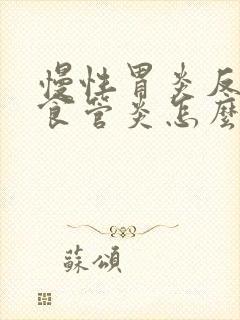 慢性胃炎反
食管炎怎麼
蘇頌